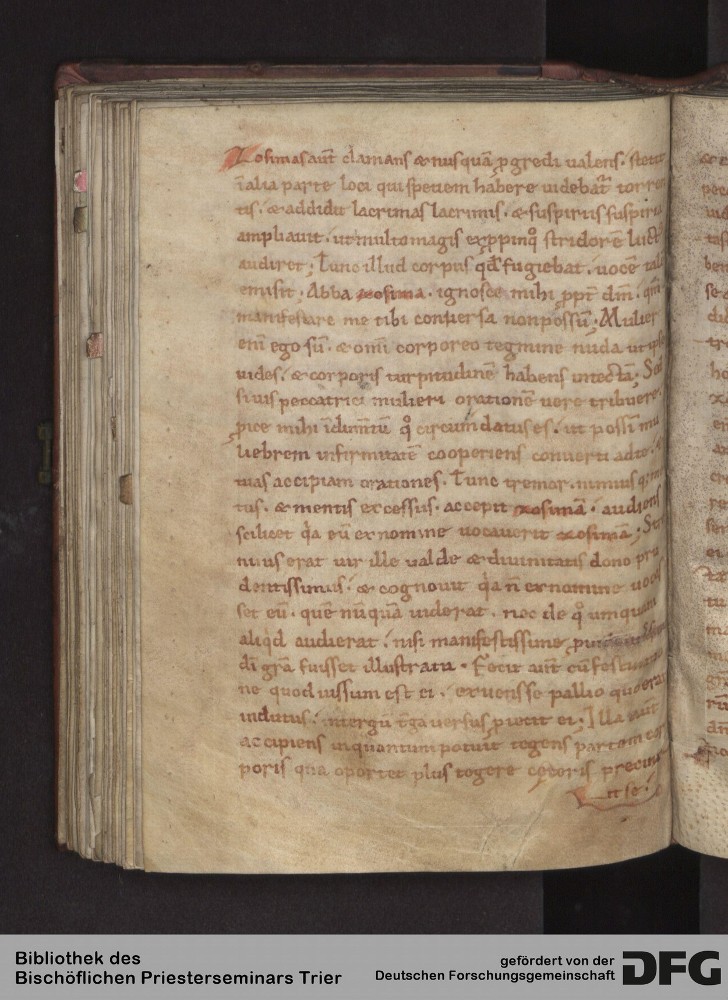 Zosimas aut̄ clamans & nusquā ꝓgredi ualens. stetit
ī alia parte loci qui speciem habere uidebat᷑ torren
tis. & addidit lacrimas lacrimis. & suspiriis suspiria
ampliauit. ut multo magis ex ꝓpinq̊ stridorē luct
audiret; Tunc illud corpus qđ fugiebat. uocē talē
emisit. Abba zosima. ignosce mihi ꝓpt̄ dm̄. qm̄
manifestare me tibi conuersa non possū; Mulier
eni ego sū. & omī corporeo tegmine nuda ut ipse
uides. & corporis turpitudinē habens intectā; Sed
si uis peccatrici mulieri orationē uere tribuere.
ꝓice mihi īdumtū q̊ circumdatus es. ut possī mu
liebrem infirmitatē cooperiens conuerti ad te. &
tuas accipiam orationes. Tunc tremor nimius
tus. & mentis excessus. accepit zosimā. audiens
scilicet q̇a eū ex nomine uocauerit zosimā; Stre
nuus erat uir ille ualde & diuinitatis dono pru
dentissimus. & cognouit q̇a n̄ ex nomine uocas
set eū. quē nūquā uiderat. nec de q̊ umquam
aliq̇d audierat. nisi manifestissime
dī gr̄a fuisset illustrata. Fecit aut̄ cū festinatio
ne quod iussum est ei. exuens se pallio quo erat
indutus. intergū t̄ga uersus ꝓiecit ei. Illa aut̄
accipiens inquantum potuit tegens partem cor
poris qua oportet plus tegere cęteris precinx
it se.
Bibliothek des
Bischöflichen Priesterseminars Trier
gefördert von der
Deutschen Forschungsgemeinschaft
DFG